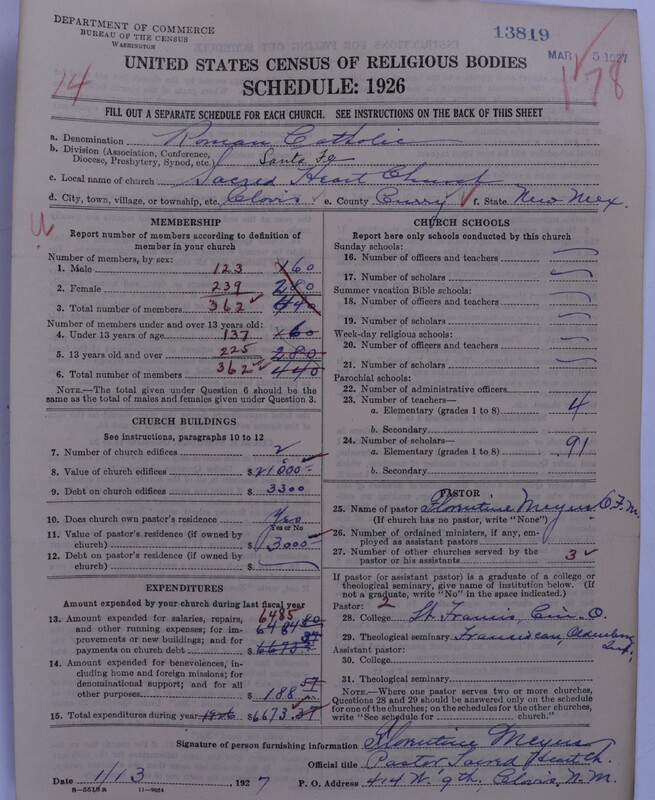 DEPARTMENT OF COMMERCE
BUREAU OF THE CENSUS
WASHINGTON
13819
MAR 5 1927
14
178
UNITED STATES CENSUS OF RELIGIOUS BODIES
SCHEDULE: 1926
FILL OUT A SEPARATE SCHEDULE FOR EACH CHURCH. SEE INSTRUCTIONS ON THE BACK OF THIS SHEET
a. Denomination Roman Catholic
b. Division (Association, Conference, Diocese, Presbytery, Synod, etc.) Santa Fe
c. Local name of church Sacred Heart Church
d. City, town, village, or township, etc. Clovis e. County Curry f. State New Mex.
MEMBERSHIP
Report number of members according to definition of
member in your church
Number of members, by sex:
1. Male 123 160
2. Female 239 280
3. Total number of members 362 440
Number of members under and over 13 years old:
4. Under 13 years of age 137 160
5. 13 years old and over 225 280
6. Total number of members 362 440
NOTE.—The total given under Question 6 should be
same as the total of males and females given under Question 3.
CHURCH BUILDINGS
See instructions, paragraphs 10 to 12
7. Number of church edifices 2
8. Value of church edifices $21000
9. Debt on church edifices $3300
10. Does church own pastor's residence Yes
Yes or No
11. Value of pastor's residence (if owned by
church) $3000
12. Debt on pastor's residence (if owned by
church) $
EXPENDITURES
Amount expended by your church during last fiscal year
13. Amount expended for salaries, repairs, 6485
and other running expenses; for im- 6484 80
provements or new buildings; and for
payments on church debt $
14. Amount expended for benevolences,
including home and foreign missions; for
denominational support; and for all
other purposes $188 57
15. Total expenditures during year 1926 $6673.37
CHURCH SCHOOLS
Report here only schools conducted by this church
Sunday schools:
16. Number of officers and teachers
17. Number of scholars
Summer vacation Bible schools:
18. Number of officers and teachers
19. Number of scholars
Week-day religious schools:
20. Number of officers and teachers
21. Number of scholars
Parochial schools:
22. Number of administrative officers
23. Number of teachers—
a. Elementary (grades 1 to 8) 4
b. Secondary
24. Number of scholars—
a. Elementary (grades 1 to 8) 91
b. Secondary
PASTOR
25. Name of pastor Florentine Meyers O.F.M.
(If church has no pastor, write "None")
26. Number of ordained ministers, if any, em-
ployed as assistant pastors
27. Number of other churches served by the
pastor or his assistants 3
If pastor (or assistant pastor) is a graduate of a college or
theological seminary, give name of institution below. (If
not a graduate, write "No" in the space indicated.)
Pastor: 2
28. College St. Francis, Cin. O.
29. Theological seminary Franciscan, Oldenburg Ind.
Assistant pastor:
30. College
31. Theological seminary
NOTE.—Where one pastor serves two or more churches,
Questions 28 and 29 should be answered only on the schedule
for one of the churches; on the schedules for the other churches,
write "See schedule for church."
Signature of person furnishing information Florentine Meyers
Official title Pastor Sacred Heart Ch.
Date 1/13 1927 P. O. Address 414 W. 9th, Clovis, N.M.
8—5518 R 11—9024